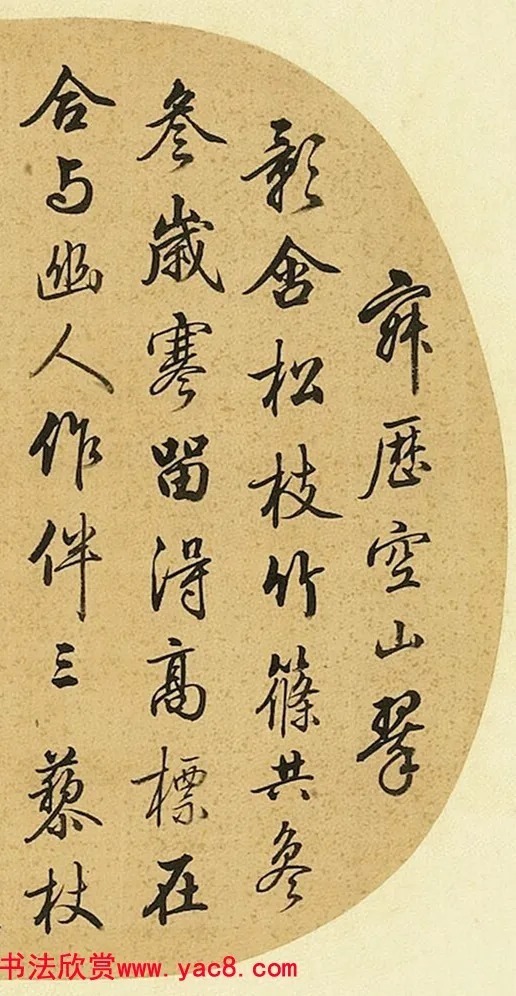 寂歷空山翠
影含松枝竹篠共參
參歲寒留得高標在
合与幽人作伴三 藜杖
书法欣赏www.yac8.com